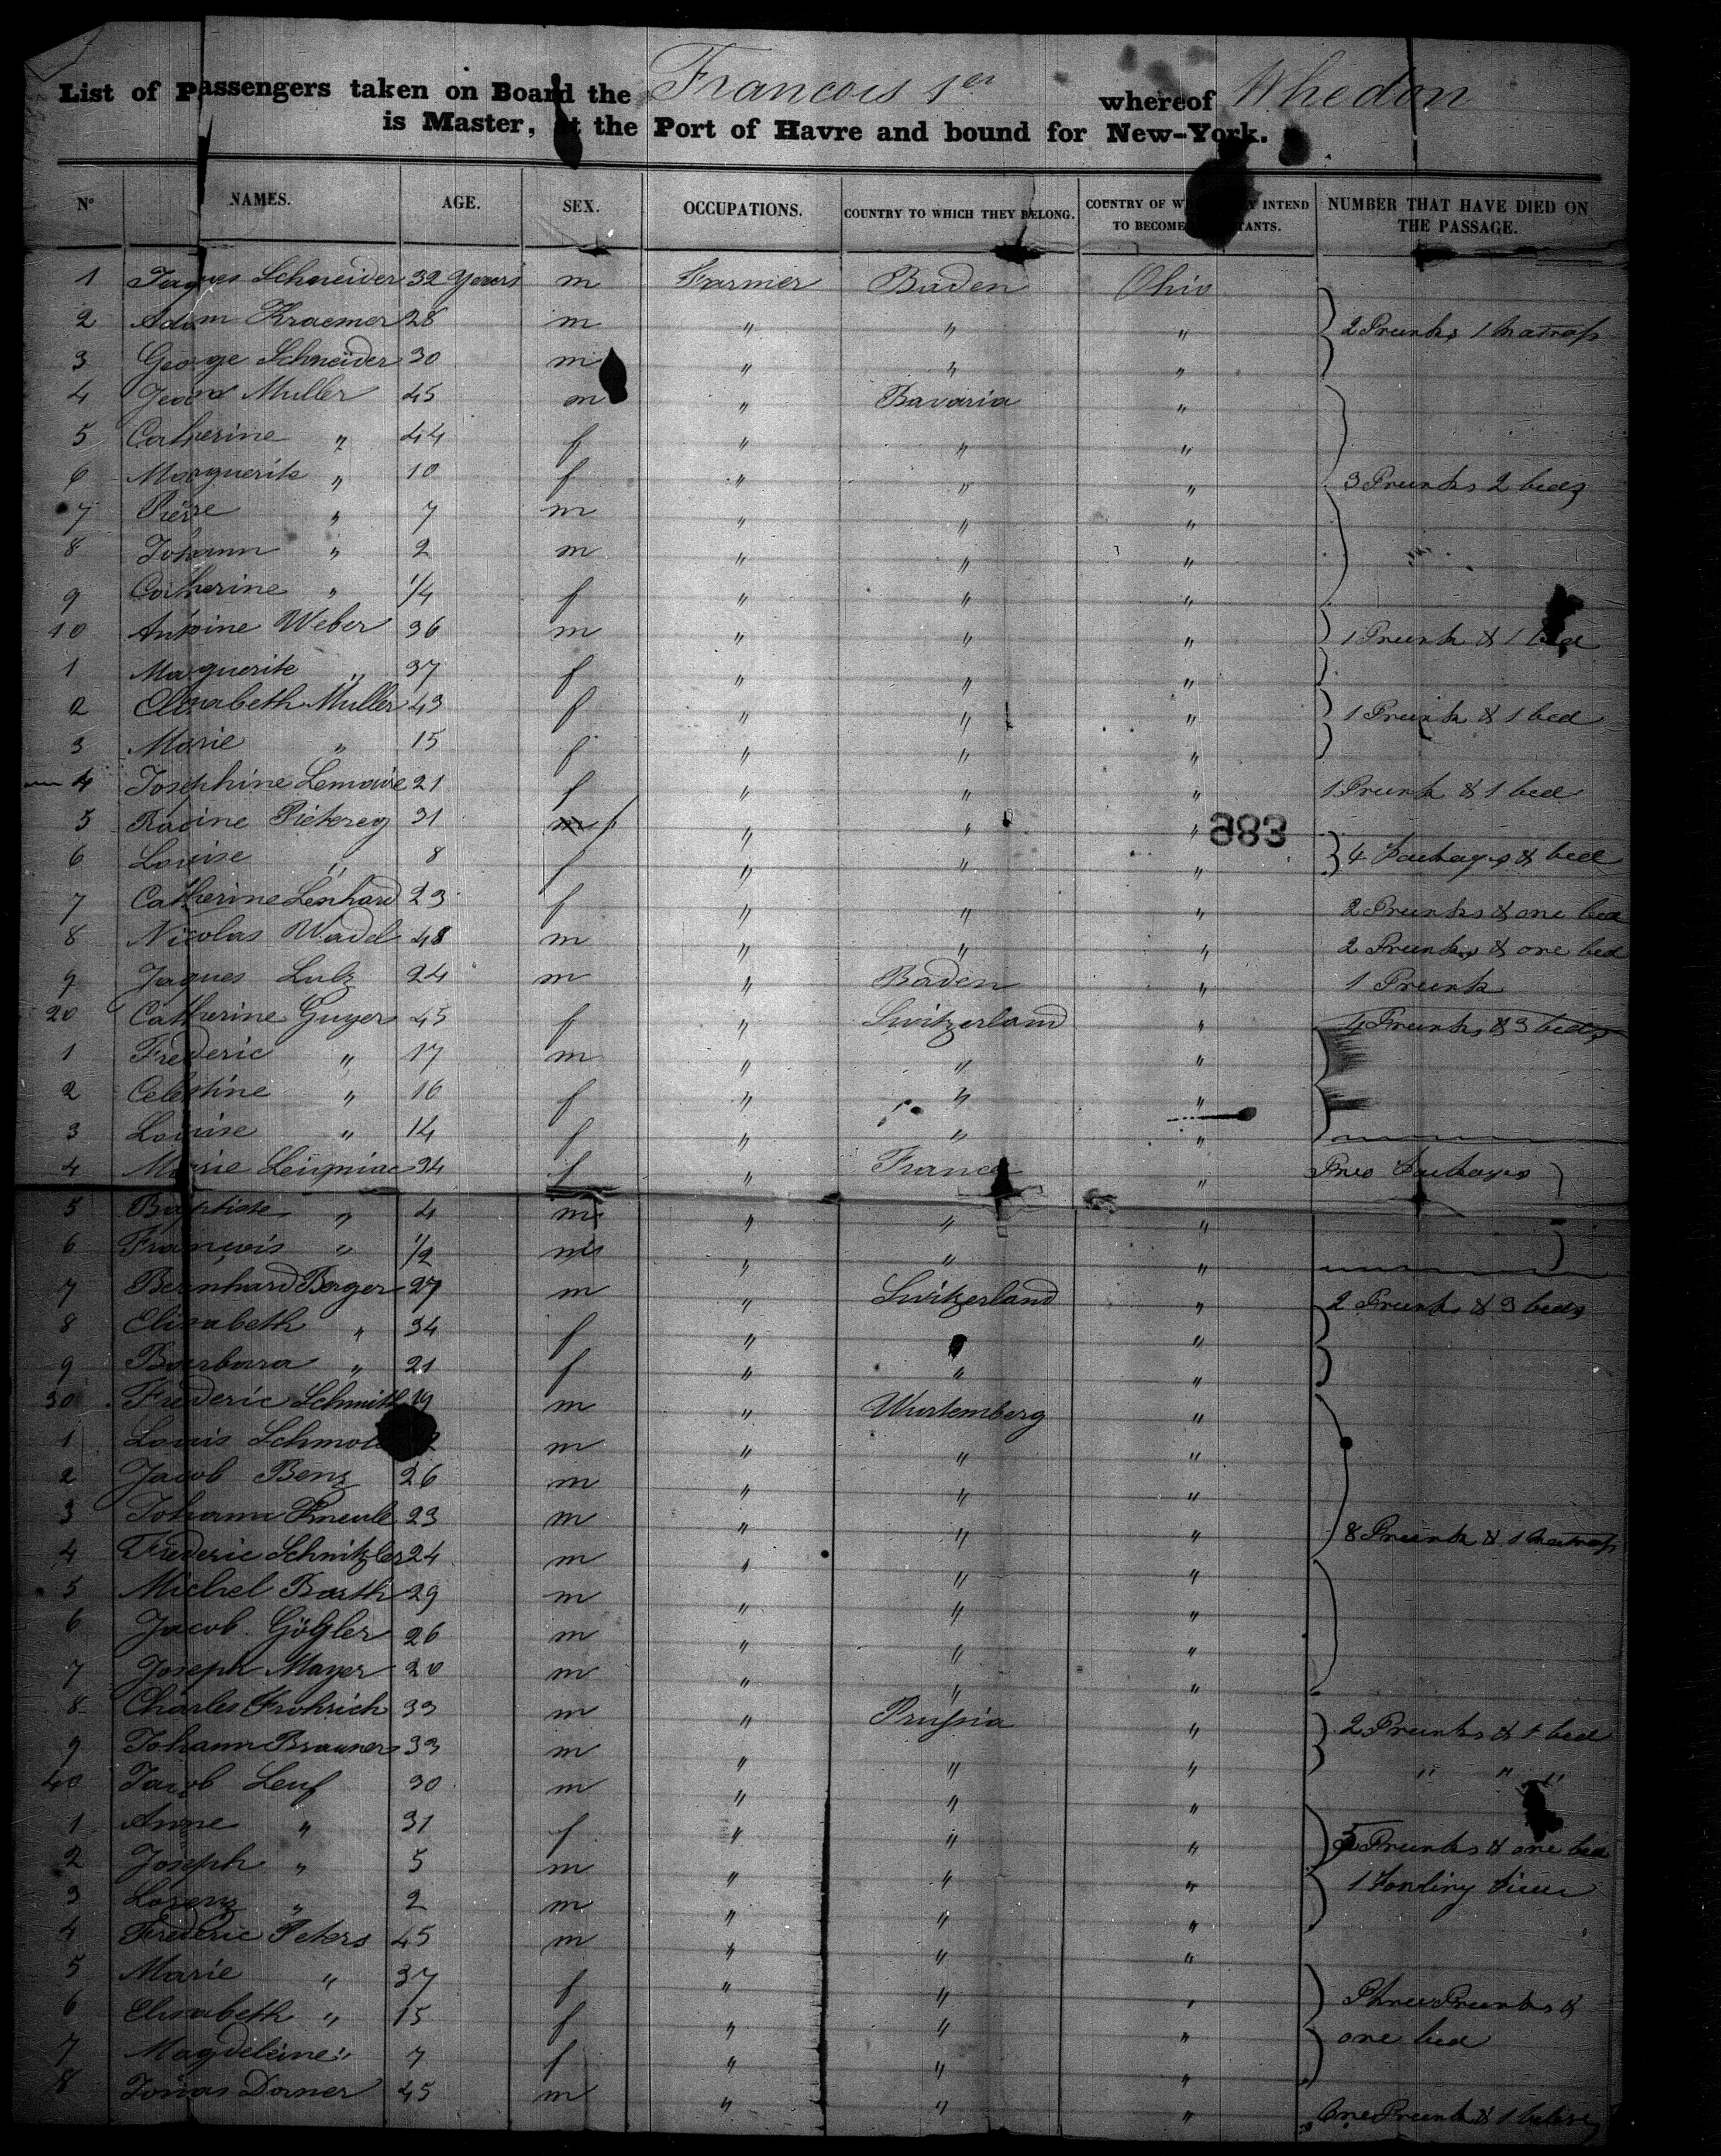 List of Passengers taken on Board the Francois 1er whereof Whedon
is Master, at the Port of Havre and bound for New-York.
No NAMES. AGE. SEX. OCCUPATIONS. COUNTRY TO WHICH THEY BELONG. COUNTRY OF INTEND TO BECOME NUMBER THAT HAVE DIED ON THE PASSAGE.
1 Jaques Schneider 32 Years m Farmer Baden Ohio
2 Adam Kraemer 28 m " " " 2 Trunks 1 Matrass
3 George Schneider 30 m " " "
4 Muller 45 m " Bavaria "
5 Catherine " 44 f " " "
6 Marguerite " 10 f " " " 3 Trunks 2 beds
7 Pierre " 7 m " " "
8 Johann " 2 m " " "
9 Catherine " 1/4 f " " "
10 Antoine Weber 36 m " " " 1 Trunk & 1 bed
1 Marguerite " 37 f " " "
2 Elisabeth Muller 43 f " " " 1 Trunk & 1 bed
3 Marie " 15 f " " "
4 Josephine Lemaire 21 f " " " 1 Trunk & 1 bed
5 31 f " " "
983
6 Louise " 8 f " " " 4 Packages & bed
7 Catherine Lenhard 23 f " " " 2 Trunks & one bed
8 Nicolas Wadel 48 m " " " 2 Trunks & one bed
9 Jaques Lutz 24 m " Baden " 1 Trunk
20 Catherine Guyer 45 f " Switzerland " 4 Trunks & 3 beds
1 Frederic " 17 m " " "
2 Celestine " 16 f " " "
3 Louise " 14 f " " "
4 Marie Leigniac 34 f " France " Two Packages
5 Baptiste " 4 m " " "
6 François " 1/2 m " " "
7 Bernhard Berger 27 m " Switzerland " 2 Trunks & 3 beds
8 Elisabeth " 34 f " " "
9 Barbara " 21 f " " "
30 Frederic Schmith 19 m " Wurtemberg "
1 Louis m " " "
2 Jacob Benz 26 m " " "
3 Johann 23 m " " " 8 Trunks & 1 Matrass
4 Frederic Schnitzler 24 m " " "
5 Michel Barth 29 m " " "
6 Jacob 26 m " " "
7 Joseph Mayer 20 m " " "
8 Charles Frohrich 33 m " Prussia " 2 Trunks & 1 bed
9 Johann Brauner 33 m " " " " " "
40 Jacob Leuf 30 m " " "
1 Anne " 31 f " " " 5 Trunks & one bed
2 Joseph " 5 m " " " 1 Fowling Piece
3 Lorenz " 2 m " " "
4 Frederic Peters 45 m " " "
5 Marie " 37 f " " " Three Trunks &
6 Elisabeth " 15 f " " " one bed
7 Magdeleine " 7 f " " "
8 Jonas Dorner 45 m " " " One Trunk & 1